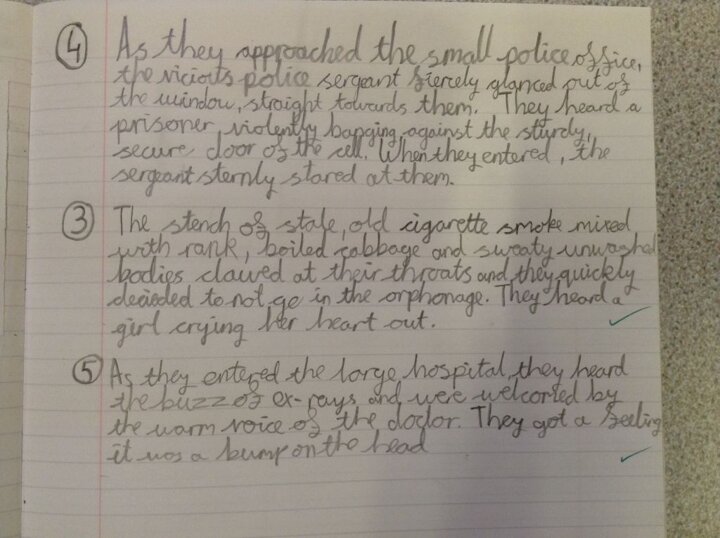 4 As they approached the small police office,
the vicious police sergeant fiercely glanced out of
the window, straight towards them. They heard a
prisoner, violently banging against the sturdy,
secure door of the cell. When they entered, the
sergeant sternly stared at them.
3 The stench of stale, old cigarette smoke mixed
with rank, boiled cabbage and sweaty unwashed
bodies clawed at their throats and they quickly
decieded to not go in the orphonage. They heard a
girl crying her heart out.
5 As they entered the large hospital, they heard
the buzz of ex-rays and were welcomed by
the warm voice of the doctor. They got a feeling
it was a bump on the head